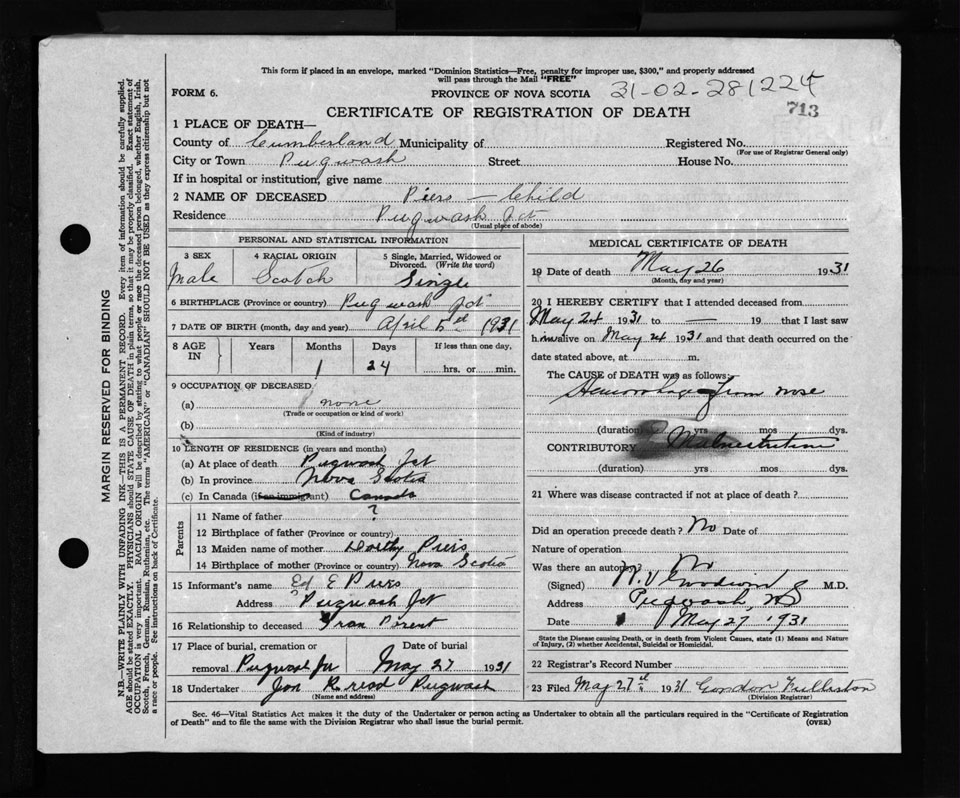 This form if placed in an envelope, marked "Dominion Statistics—Free, penalty for improper use, $300," and properly addressed
will pass through the Mail "FREE"
FORM 6.
PROVINCE OF NOVA SCOTIA
31-02-281224
CERTIFICATE OF REGISTRATION OF DEATH
713
1 PLACE OF DEATH—
County of Cumberland Municipality of Registered No.
(For use of Registrar General only)
City or Town Pugwash Street House No.
If in hospital or institution, give name
2 NAME OF DECEASED Piers — Child
Residence Pugwash Jct
(Usual place of abode)
PERSONAL AND STATISTICAL INFORMATION
3 SEX 4 RACIAL ORIGIN 5 Single, Married, Widowed or Divorced. (Write the word)
Male Scotch Single
6 BIRTHPLACE (Province or country) Pugwash Jct
7 DATE OF BIRTH (month, day and year) April 1931
8 AGE IN Years Months Days If less than one day,
1 24 hrs. or min.
9 OCCUPATION OF DECEASED
(a) none
(Trade or occupation or kind of work)
(b)
(Kind of industry)
10 LENGTH OF RESIDENCE (in years and months)
(a) At place of death Pugwash Jct
(b) In province Nova Scotia
(c) In Canada (if an immigrant) Canada
Parents
11 Name of father ?
12 Birthplace of father (Province or country)
13 Maiden name of mother Dorthy Piers
14 Birthplace of mother (Province or country) Nova Scotia
15 Informant's name Ed E Piers
Address Pugwash Jct
16 Relationship to deceased Gran Parent
17 Place of burial, cremation or removal Date of burial
Pugwash Jn May 27 1931
18 Undertaker Pugwash
(Name and address)
MEDICAL CERTIFICATE OF DEATH
19 Date of death May 26 1931
(Month, day and year)
20 I HEREBY CERTIFY that I attended deceased from
May 24 1931 to — 19 that I last saw
him alive on May 24 1931 and that death occurred on the
date stated above, at m.
The CAUSE of DEATH was as follows:
Hemorrhage from nose
(duration) yrs mos dys.
CONTRIBUTORY Malnutrition
(duration) yrs. mos. dys.
21 Where was disease contracted if not at place of death?
Did an operation precede death? No Date of
Nature of operation
Was there an autopsy? No
(Signed) Goodwin M.D.
Address Pugwash, NS
Date May 27 1931
State the Disease causing Death, or in death from Violent Causes, state (1) Means and Nature
of Injury, (2) whether Accidental, Suicidal or Homicidal.
22 Registrar's Record Number
23 Filed May 27th 1931 Gordon
(Division Registrar)
Sec. 46—Vital Statistics Act makes it the duty of the Undertaker or person acting as Undertaker to obtain all the particulars required in the "Certificate of Registration
of Death" and to file the same with the Division Registrar who shall issue the burial permit.
(OVER)
MARGIN RESERVED FOR BINDING
N.B.—WRITE PLAINLY WITH UNFADING INK—THIS IS A PERMANENT RECORD. Every item of information should be carefully supplied.
AGE should be stated EXACTLY. PHYSICIANS should STATE CAUSE OF DEATH in plain terms, so that it may be properly classified. Exact statement of
OCCUPATION is very important. RACIAL ORIGIN will be described by stating to what people or race the deceased person belonged, whether English, Irish,
Scotch, French, German, Russian, Ruthenian, etc. The terms "AMERICAN" or "CANADIAN" SHOULD NOT BE USED as they express citizenship but not
a race or people. See instructions on back of Certificate.